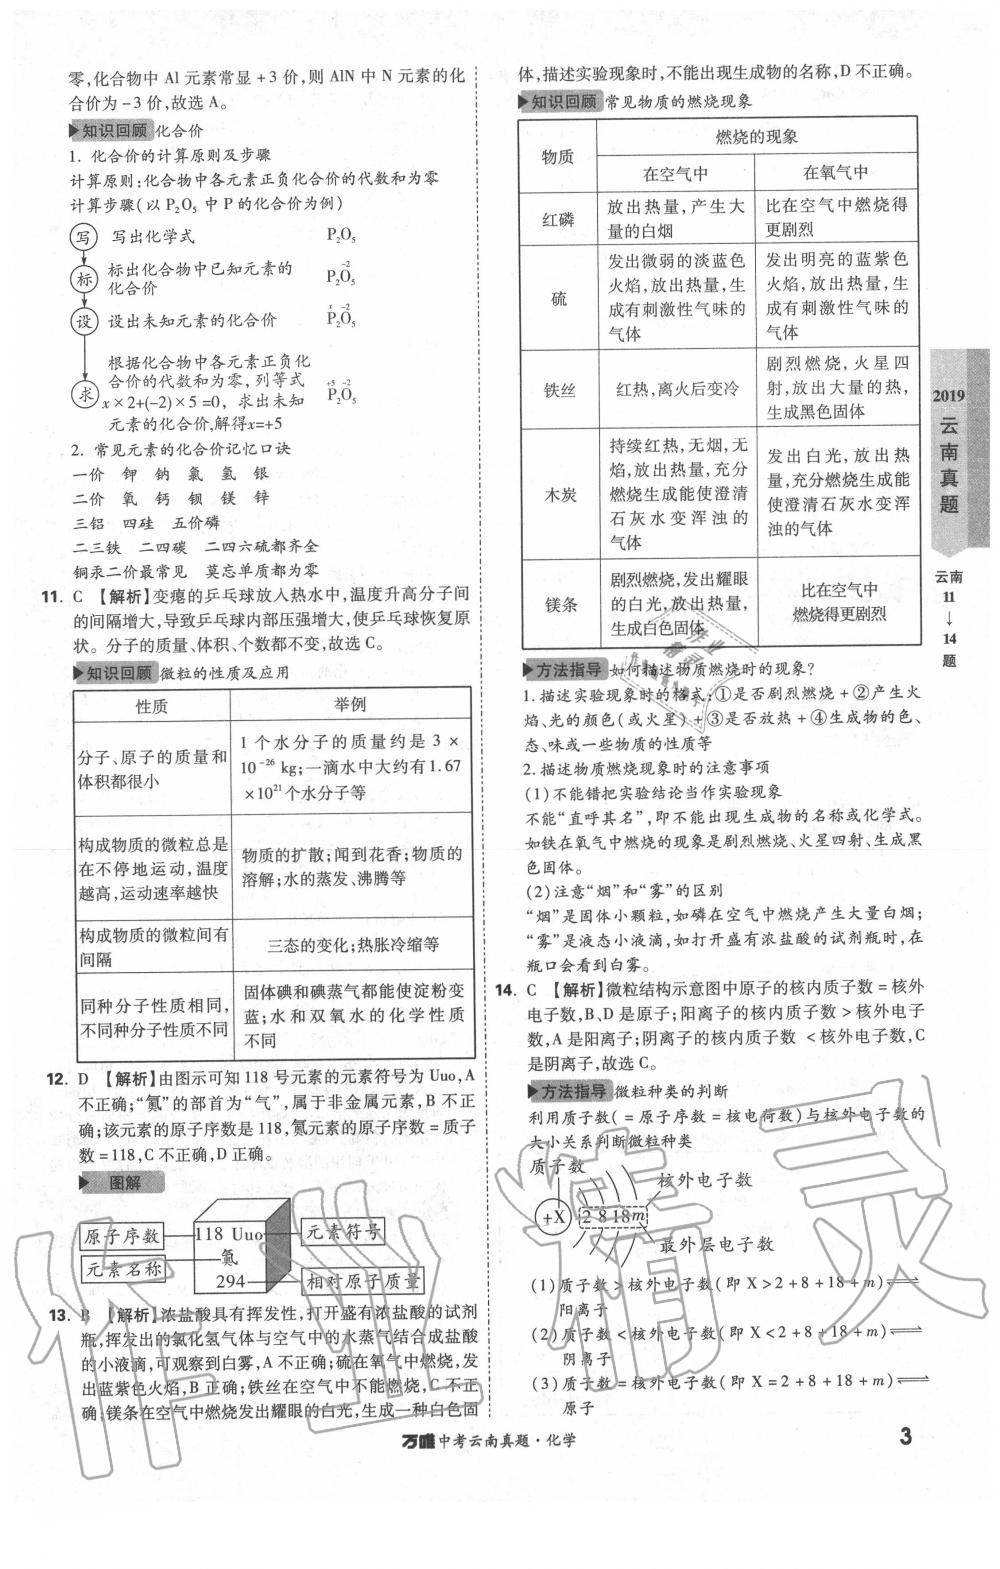 零,化合物中 Al 元素常显 +3 价,则 AlN 中 N 元素的化
合价为 -3 价,故选 A。
▶知识回顾 化合价
1. 化合价的计算原则及步骤
计算原则:化合物中各元素正负化合价的代数和为零
计算步骤(以 P₂O₅ 中 P 的化合价为例)
写 写出化学式 P₂O₅
标 标出化合物中已知元素的
化合价
-2
P₂O₅
设 设出未知元素的化合价
x -2
P₂O₅
求 根据化合物中各元素正负化
合价的代数和为零,列等式
x×2+(-2)×5 =0, 求出未知
元素的化合价,解得x=+5
+5 -2
P₂O₅
2. 常见元素的化合价记忆口诀
一价 钾 钠 氯 氢 银
二价 氧 钙 钡 镁 锌
三铝 四硅 五价磷
二三铁 二四碳 二四六硫都齐全
铜汞二价最常见 莫忘单质都为零
11. C 【解析】变瘪的乒乓球放入热水中,温度升高分子间
的间隔增大,导致乒乓球内部压强增大,使乒乓球恢复原
状。分子的质量、体积、个数都不变,故选 C。
▶知识回顾 微粒的性质及应用
性质 举例
分子、原子的质量和
体积都很小
1 个水分子的质量约是 3 ×
10⁻²⁶ kg;一滴水中大约有1.67
×10²¹个水分子等
构成物质的微粒总是
在不停地运动,温度
越高,运动速率越快
物质的扩散;闻到花香;物质的
溶解;水的蒸发、沸腾等
构成物质的微粒间有
间隔
三态的变化;热胀冷缩等
同种分子性质相同,
不同种分子性质不同
固体碘和碘蒸气都能使淀粉变
蓝;水和双氧水的化学性质
不同
12. D 【解析】由图示可知 118 号元素的元素符号为 Uuo,A
不正确;“氮”的部首为“气”,属于非金属元素,B 不正
确;该元素的原子序数是 118,氮元素的原子序数 = 质子
数 = 118,C 不正确,D 正确。
▶ 图解
原子序数
118 Uuo
元素符号
元素名称
294
相对原子质量
13. B 【解析】浓盐酸具有挥发性,打开盛有浓盐酸的试剂
瓶,挥发出的氯化氢气体与空气中的水蒸气结合成盐酸
的小液滴,可观察到白雾,A 不正确;硫在氧气中燃烧,发
出蓝紫色火焰,B 正确;铁丝在空气中不能燃烧,C 不正
确;镁条在空气中燃烧发出耀眼的白光,生成一种白色固
体,描述实验现象时,不能出现生成物的名称,D 不正确。
▶知识回顾 常见物质的燃烧现象
物质 燃烧的现象
在空气中 在氧气中
红磷
放出热量,产生大
量的白烟
比在空气中燃烧得
更剧烈
硫
发出微弱的淡蓝色
火焰,放出热量,生
成有刺激性气味的
气体
发出明亮的蓝紫色
火焰,放出热量,生
成有刺激性气味的
气体
铁丝
红热,离火后变冷
剧烈燃烧,火星四
射,放出大量的热,
生成黑色固体
木炭
持续红热,无烟,无
焰,放出热量,充分
燃烧生成能使澄清
石灰水变浑浊的
气体
发出白光,放出热
量,充分燃烧生成能
使澄清石灰水变浑
浊的气体
镁条
剧烈燃烧,发出耀眼
的白光,放出热量,
生成白色固体
比在空气中
燃烧得更剧烈
▶方法指导 如何描述物质燃烧时的现象?
1. 描述实验现象时的格式:①是否剧烈燃烧 + ②产生火
焰、光的颜色(或火星) + ③是否放热 + ④生成物的色、
态、味或一些物质的性质等
2. 描述物质燃烧现象时的注意事项
(1)不能错把实验结论当作实验现象
不能“直呼其名”,即不能出现生成物的名称或化学式。
如铁在氧气中燃烧的现象是剧烈燃烧、火星四射、生成黑
色固体。
(2)注意“烟”和“雾”的区别
“烟”是固体小颗粒,如磷在空气中燃烧产生大量白烟;
“雾”是液态小液滴,如打开盛有浓盐酸的试剂瓶时,在
瓶口会看到白雾。
14. C 【解析】微粒结构示意图中原子的核内质子数 = 核外
电子数,B、D 是原子;阳离子的核内质子数 > 核外电子
数,A 是阳离子;阴离子的核内质子数 < 核外电子数,C
是阴离子,故选 C。
▶方法指导 微粒种类的判断
利用质子数( = 原子序数 = 核电荷数)与核外电子数的
大小关系判断微粒种类
质子数
核外电子数
+X 2 8 18 m
最外层电子数
(1)质子数 > 核外电子数(即 X > 2 + 8 + 18 + m)⇌
阳离子
(2)质子数 < 核外电子数(即 X < 2 + 8 + 18 + m)⇌
阴离子
(3)质子数 = 核外电子数(即 X = 2 + 8 + 18 + m)⇌
原子
2019
云南真题
云南
11
↓
14
题
万唯中考云南真题·化学
3
作业精灵